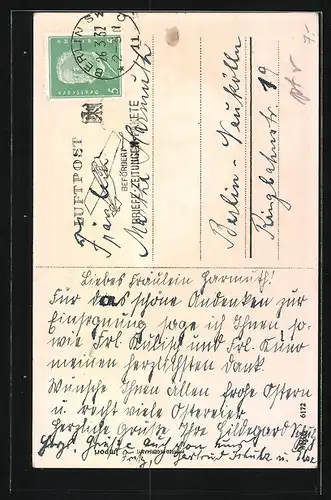 BERLIN S
26.3.32
5
LUFTPOST
BEFÖRDERT
BRIEFE ZEITUNGEN PAKETE
Fräulein
Berlin - Neukölln
Ringbahnstr 19
7.-
Liebes Fräulein Harmuth!
Für das schöne Andenken zur
Einsegnung sage ich Ihnen so-
wie Frl. und Frl.
meinen herzlichsten Dank.
Wünsche Ihnen allen frohe Ostern
u. recht viele Ostereier
herzliche Grüsse Ihre Hildegard
Herzl. Grüße auch von uns
Gertrud Schulz u.
6172